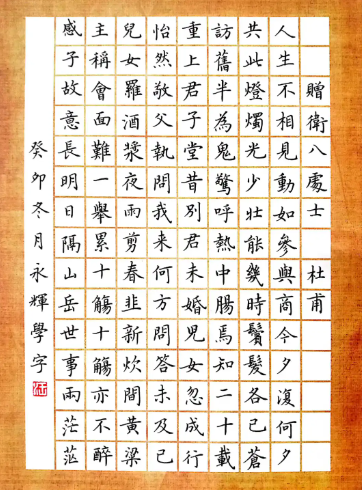 贈衛八處士 杜甫
人生不相見動如參與商今夕復何夕
共此燈燭光少壯能幾時鬢髮各已蒼
訪舊半為鬼驚呼熱中腸焉知二十載
重上君子堂昔別君未婚児女忽成行
怡然敬父執問我来何方問答未及已
兒女羅酒漿夜雨剪春韭新炊間黃梁
主稱會面難一舉累十觴十觴亦不醉
感子故意長明日隔山岳世事兩茫茫
癸卯冬月永輝學字